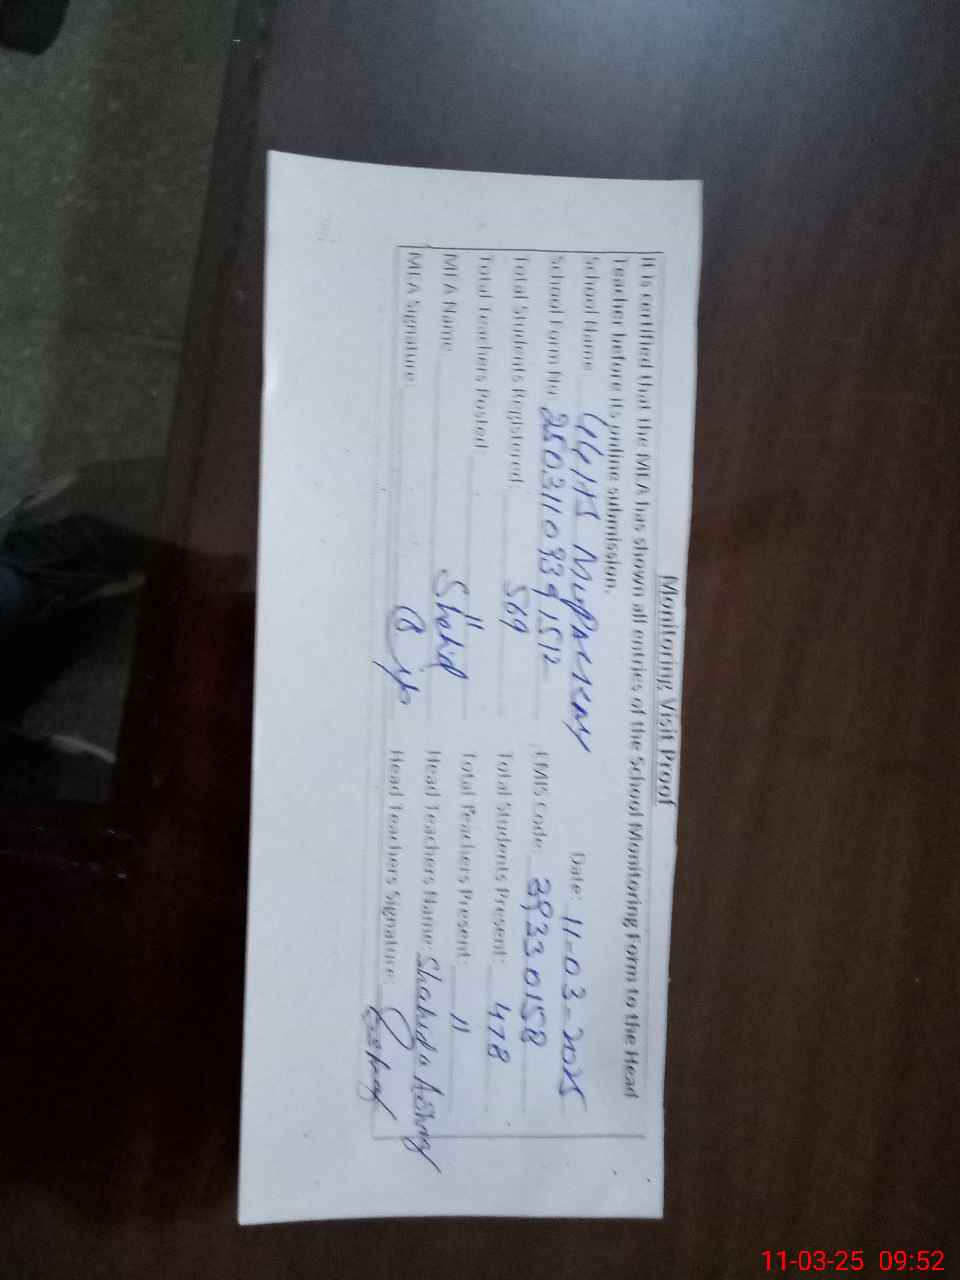 Monitoring Visit Proof
It is certified that the MEA has shown all entries of the School Monitoring Form to the Head
Teacher before its online submission.
School Name: Date: 11-03-2025
School Form No. EMIS Code:
Total Students Registered: 569 Total Students Present: 478
Total Teachers Posted: 11 Total Teachers Present: 11
MEA Name: Shahid Head Teachers Name: Shahida
MEA Signature: Head Teachers Signature:
11-03-25 09:52